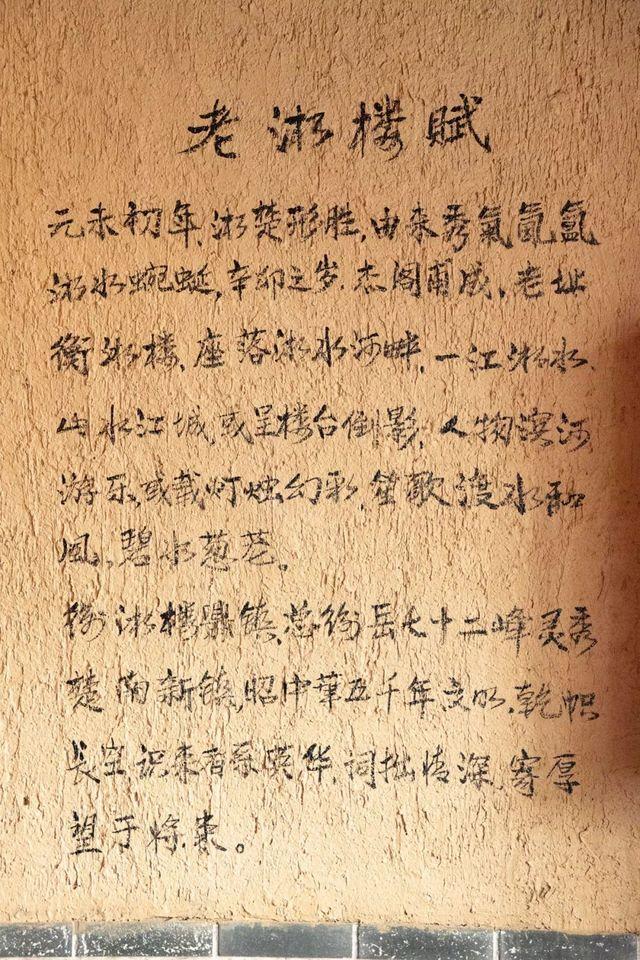 老淞楼赋
元末初年,淞楚形胜,由来秀氣氤氲
淞水蜿蜒,辛卯之岁.杰阁甫成,老址
衡淞楼,座落淞水河畔,一江淞水.
山水江城,或呈楼台倒影,人物滨河
游乐,或载灯烛幻彩,笙歌渡水和
风,碧水葱茏。
衡淞楼鼎镇,总衡岳七十二峰灵秀
楚南新镇,昭中華五千年文明.乾帜
长空识来者 英华,词拙情深,寄厚
望于将来。